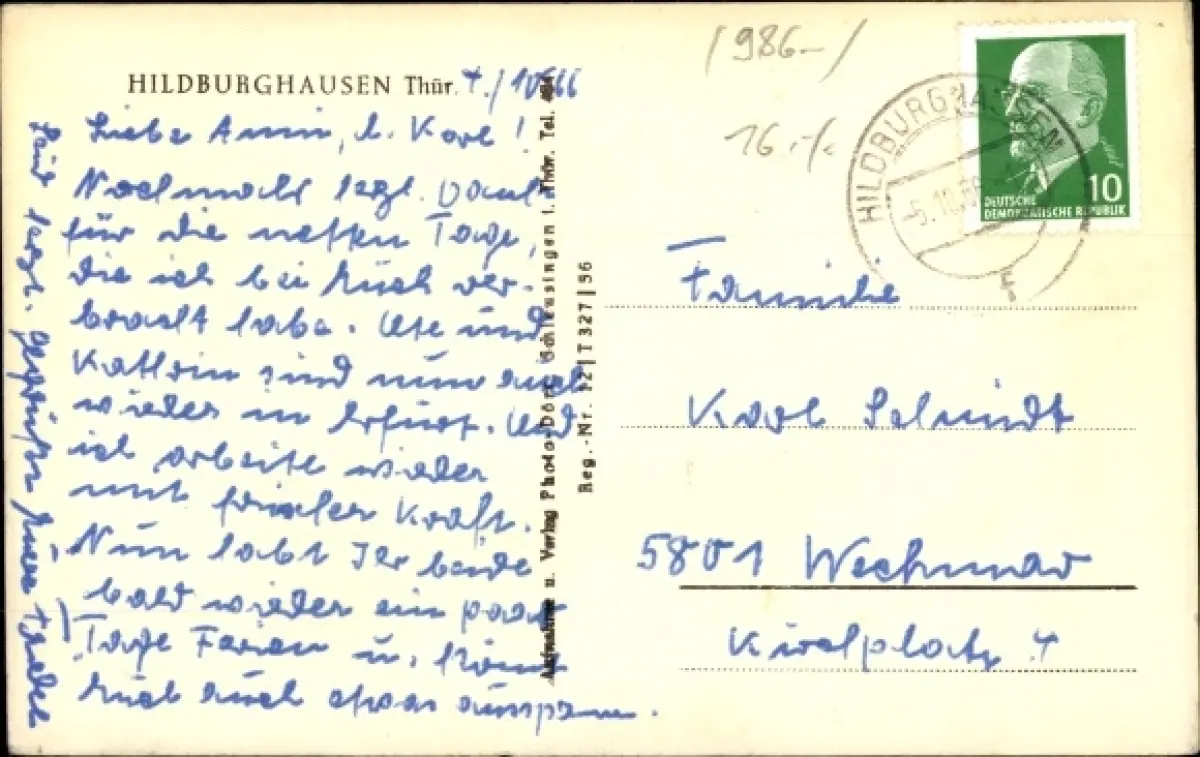 HILDBURGHAUSEN Thür. 4./10.66
Liebe Anni, l. Karl!
Nochmals herzl. Dank
für die netten Tage,
die ich bei Euch ver-
bracht habe. Ute und
Kathrin sind nun auch
wieder in Erfurt. Und
ich arbeite wieder
mit frischer Kraft.
Nun habt Ihr beide
bald wieder ein paar
Tage Ferien u. könnt
Euch auch etwas ausspannen.
Seid herzl. gegrüßt Eure
Aufnahme u. Verlag Photo-Dörr, Schleusingen i. Thür. Tel. 484
Reg.-Nr. 12|T 327|56
1986-/
16.-/.
HILDBURGHAUSEN
-5.10.66
f
10
DEUTSCHE
DEMOKRATISCHE REPUBLIK
Familie
Karl Schmidt
5801 Wechmar
Kirchplatz 4